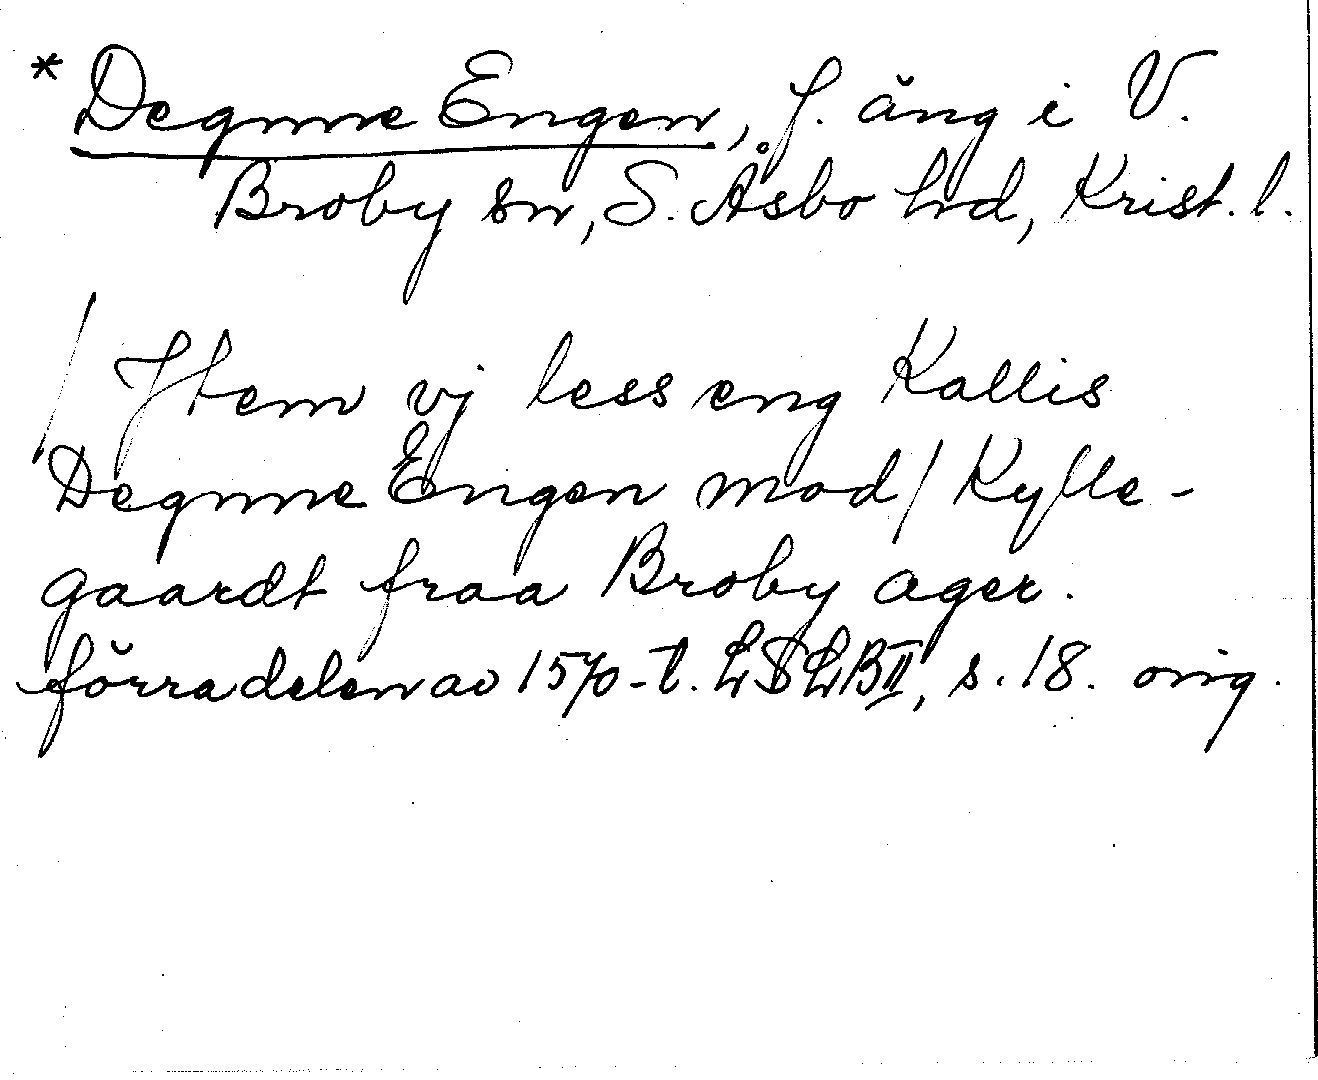 * Degnne Engen, f. äng i V.
Broby sn, S. Åsbo hd, Krist. l.
/ Item vj less eng Kallis
Degnne Engen mod / Kylle-
gaardt fraa Broby ager.
förra delen av 1570-t. LSLB II, s. 18. orig.